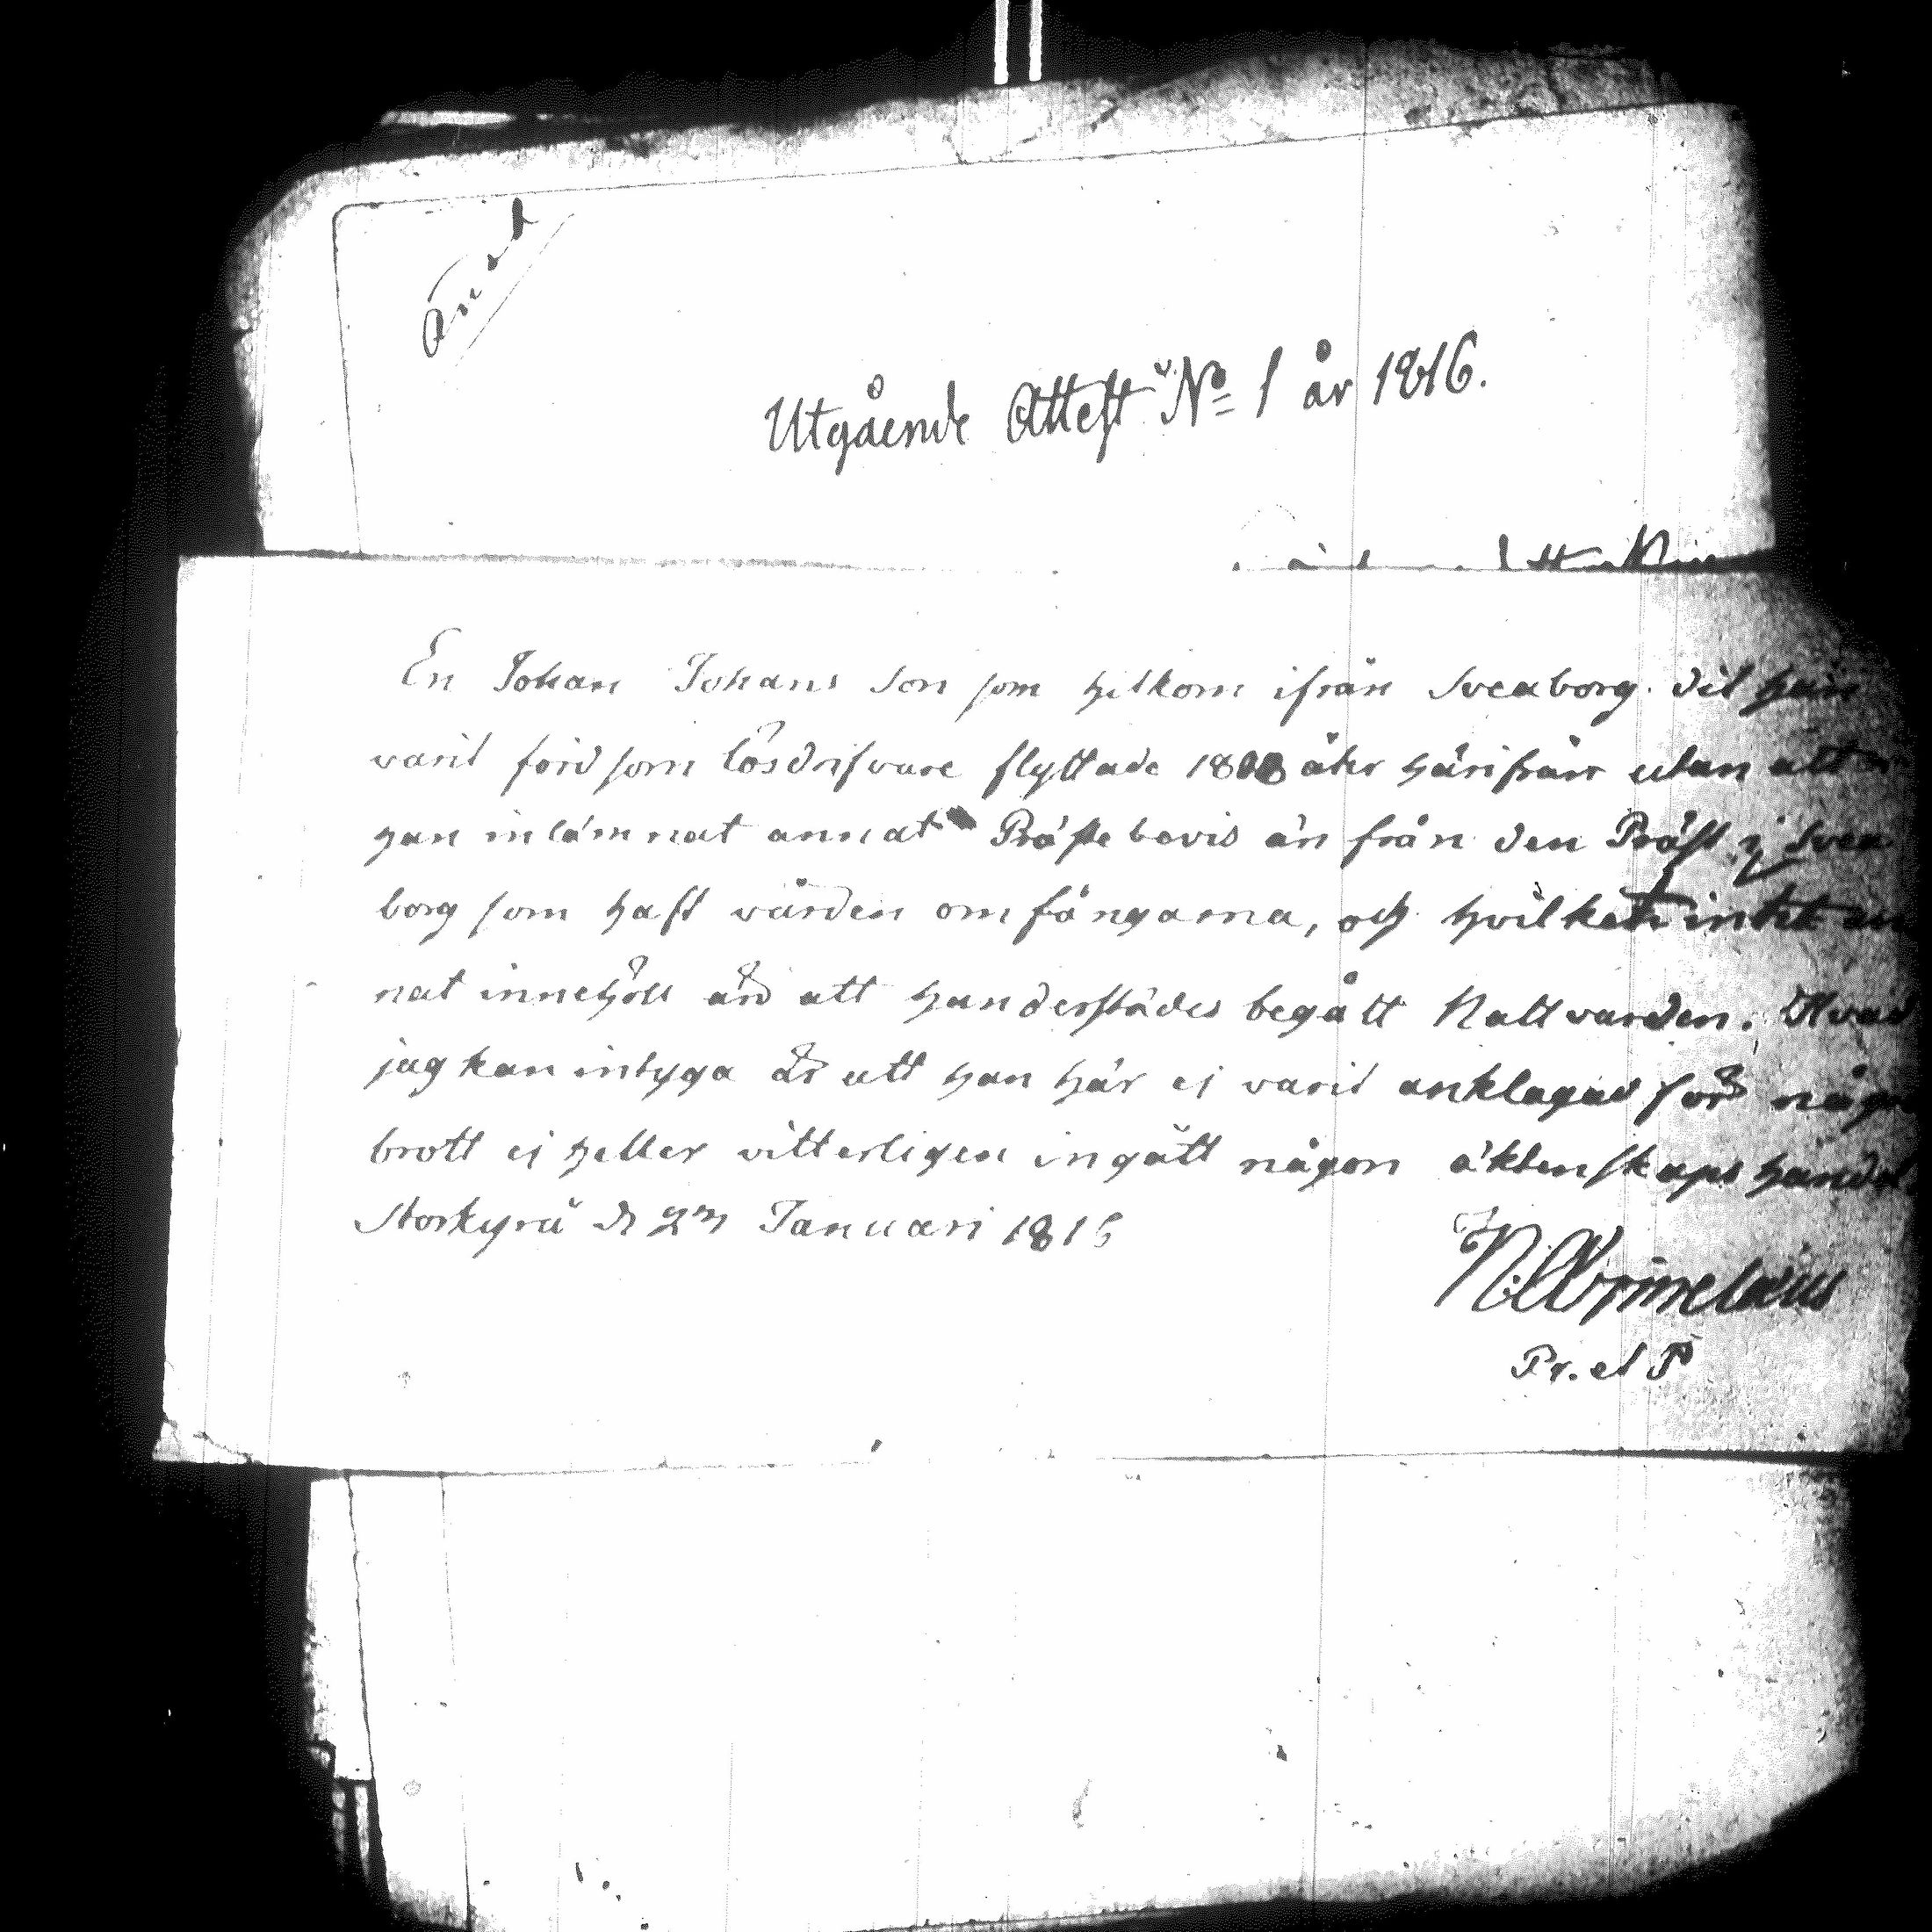 Utgående Attest No 1 år 1816.
En Johan Johans son som hitkom ifrån Sveaborg dit han
varit förd som lösdrifvare flyttade 1808 åhr härifrån utan att
han inlämnat annat Präste bevis än från den Präst i Svea
borg som haft vården om fångarna, och hvilket intet an
nat innehöll än att han derstädes begått Nattvarden. Hvad
jag kan intyga är att han här ej varit anklagad för någr
brott ej heller vitterligen ingått någon äktenskaps handel
Storkyrö d 27 Januari 1816
Pr. et P